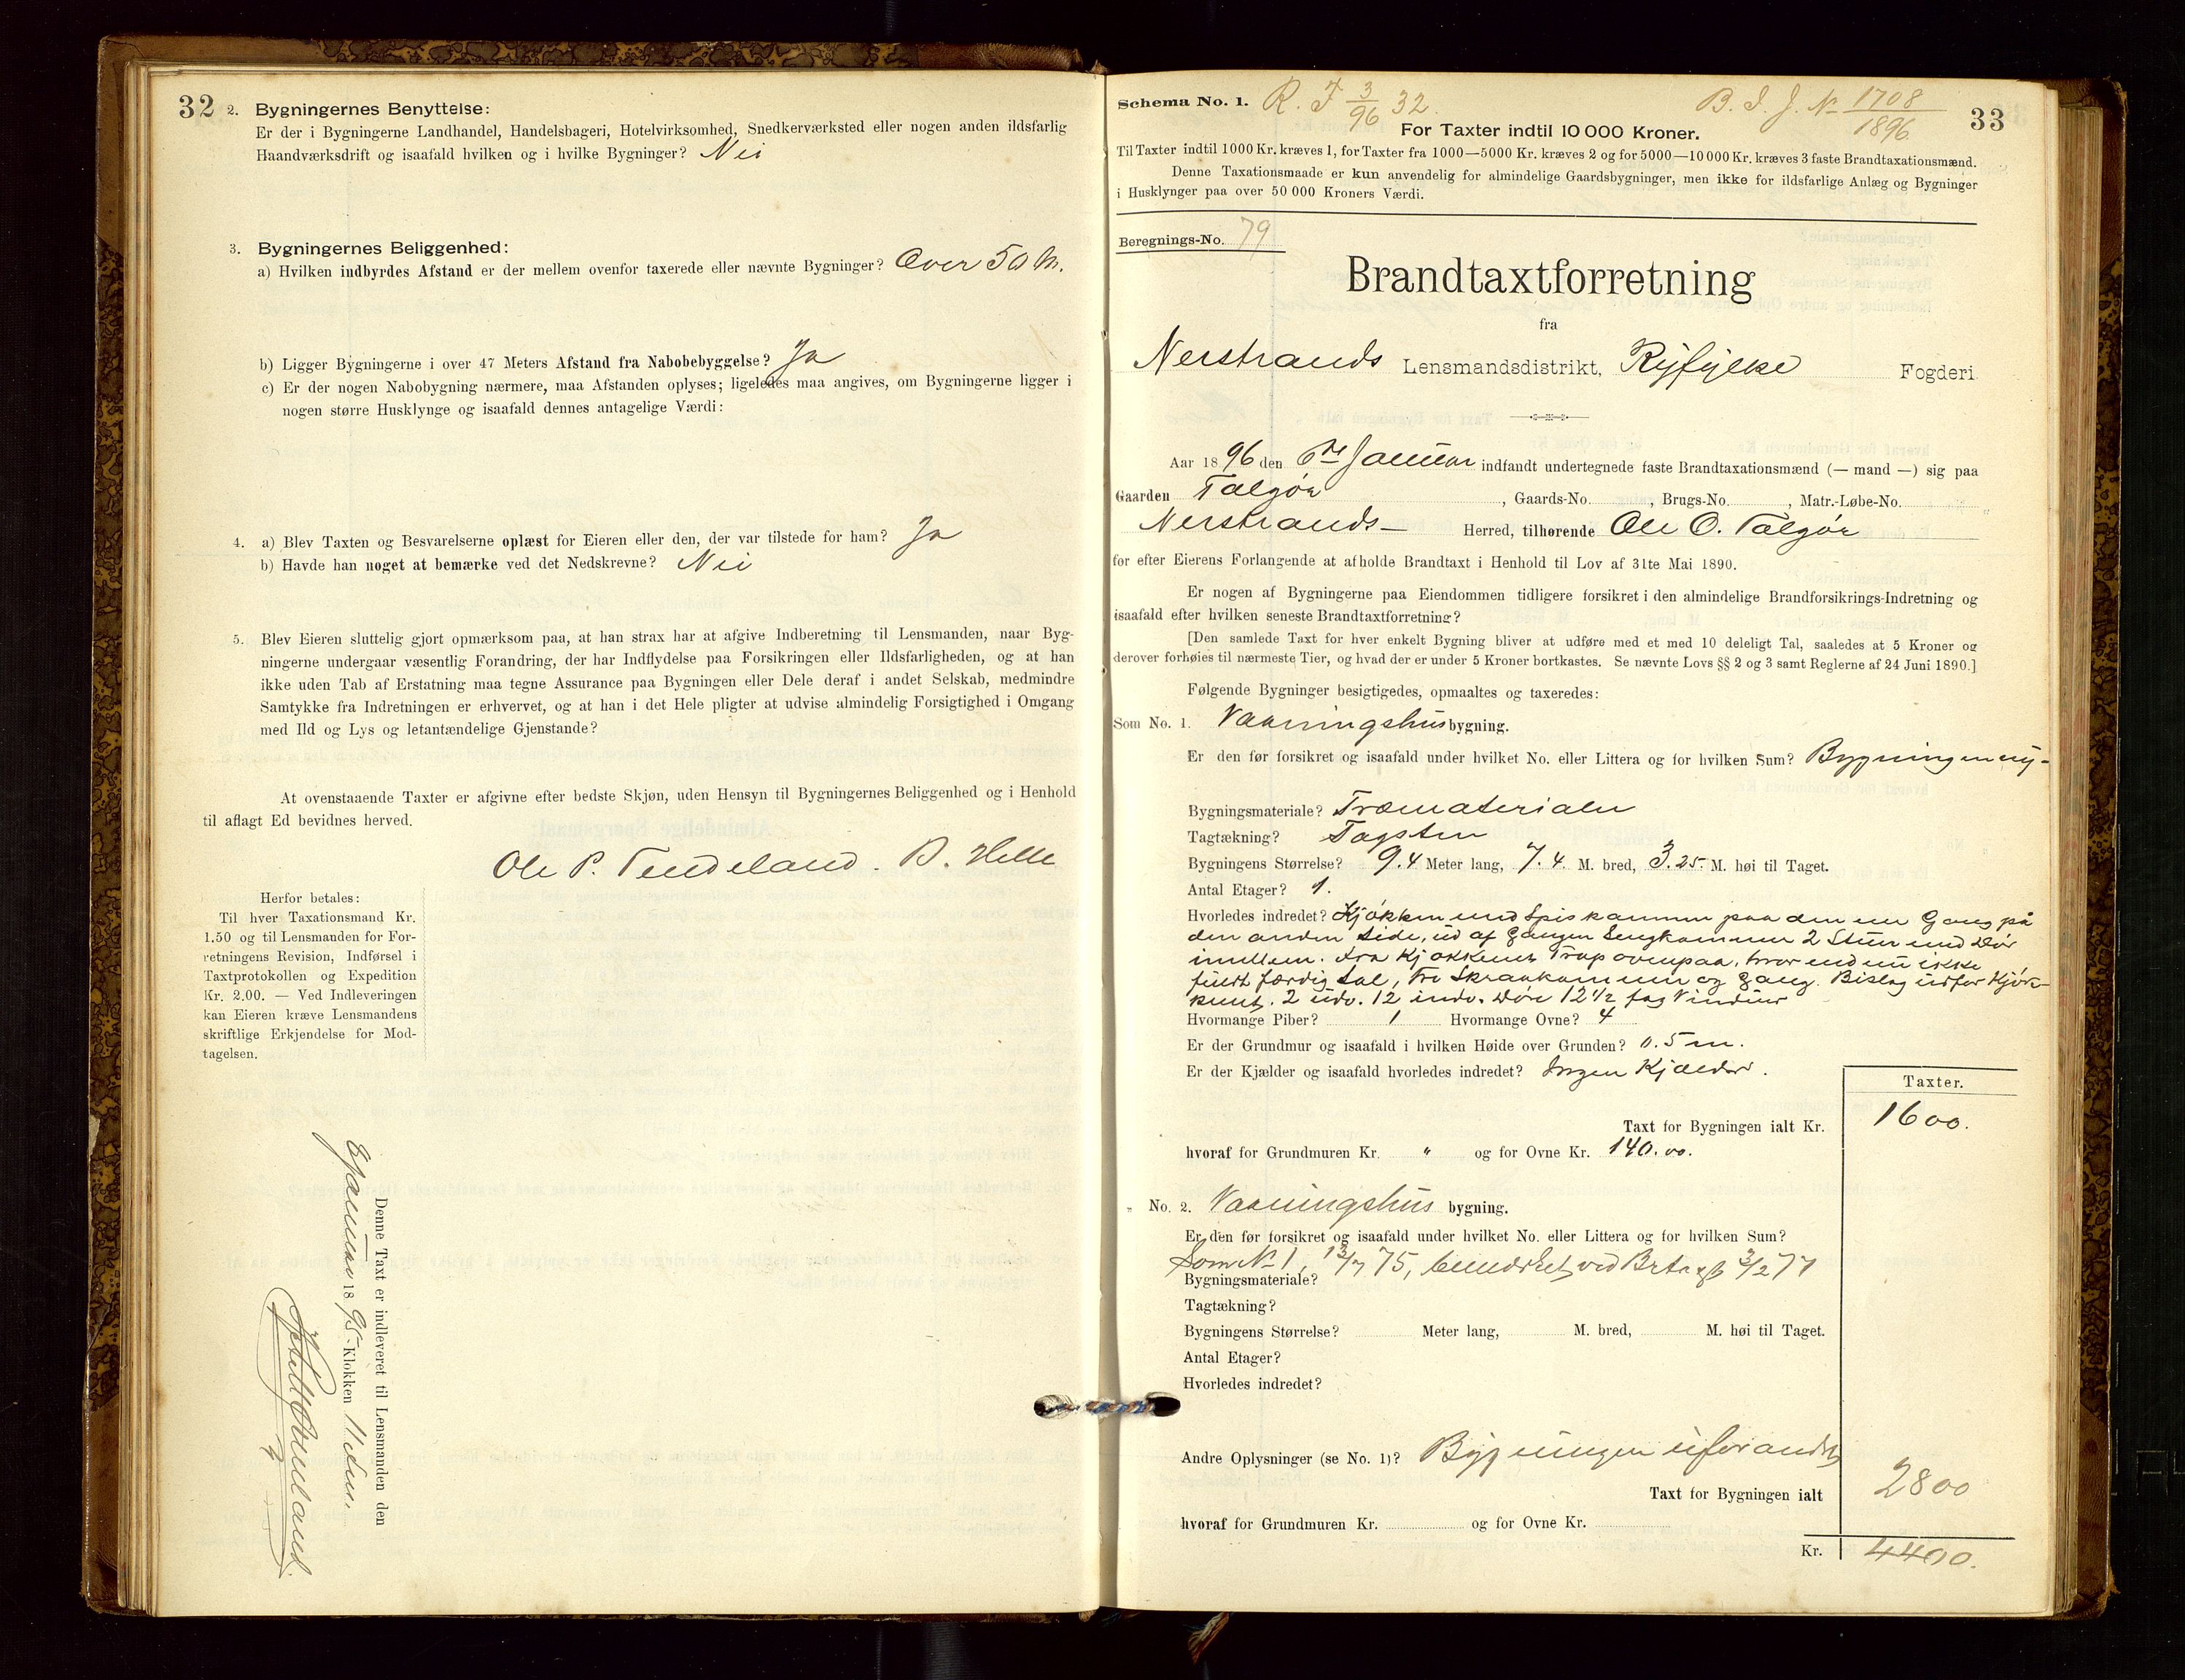 32
2. Bygningernes Benyttelse:
Er der i Bygningerne Landhandel, Handelsbageri, Hotelvirksomhed, Snedkerværksted eller nogen anden ildsfarlig
Haandværksdrift og isaafald hvilken og i hvilke Bygninger? Nei
3. Bygningernes Beliggenhed:
a) Hvilken indbyrdes Afstand er der mellem ovenfor taxerede eller nævnte Bygninger? Over 50 M.
b) Ligger Bygningerne i over 47 Meters Afstand fra Nabobebyggelse? Ja
c) Er der nogen Nabobygning nærmere, maa Afstanden oplyses; ligeledes maa angives, om Bygningerne ligger i
nogen større Husklynge og isaafald dennes antagelige Værdi:
4. a) Blev Taxten og Besvarelserne oplæst for Eieren eller den, der var tilstede for ham? Ja
b) Havde han noget at bemærke ved det Nedskrevne? Nei
5. Blev Eieren sluttelig gjort opmærksom paa, at han strax har at afgive Indberetning til Lensmanden, naar Byg-
ningerne undergaar væsentlig Forandring, der har Indflydelse paa Forsikringen eller Ildsfarligheden, og at han
ikke uden Tab af Erstatning maa tegne Assurance paa Bygningen eller Dele deraf i andet Selskab, medmindre
Samtykke fra Indretningen er erhvervet, og at han i det Hele pligter at udvise almindelig Forsigtighed i Omgang
med Ild og Lys og letantændelige Gjenstande?
At ovenstaaende Taxter er afgivne efter bedste Skjøn, uden Hensyn til Bygningernes Beliggenhed og i Henhold
til aflagt Ed bevidnes herved.
Ole P. Tendeland. B. Helle
Herfor betales:
Til hver Taxationsmand Kr.
1.50 og til Lensmanden for For-
retningens Revision, Indførsel i
Taxtprotokollen og Expedition
Kr. 2.00. — Ved Indleveringen
kan Eieren kræve Lensmandens
skriftlige Erkjendelse for Mod-
tagelsen.
Denne Taxt er indleveret til Lensmanden den
Januar 1895 Klokken 11
Schema No. 1. R. F 3/96 32. B. I. J. No 1708/1896 33
For Taxter indtil 10 000 Kroner.
Til Taxter indtil 1000 Kr. kræves 1, for Taxter fra 1000—5000 Kr. kræves 2 og for 5000—10 000 Kr. kræves 3 faste Brandtaxationsmænd.
Denne Taxationsmaade er kun anvendelig for almindelige Gaardsbygninger, men ikke for ildsfarlige Anlæg og Bygninger
i Husklynger paa over 50 000 Kroners Værdi.
Beregnings-No. 79
Brandtaxtforretning
fra
Nerstrands Lensmandsdistrikt, Ryfylke Fogderi
Aar 1896 den 6te Januar indfandt undertegnede faste Brandtaxationsmænd (— mand —) sig paa
Gaarden Talgøx, Gaards-No. , Brugs-No. , Matr.-Løbe-No.
Nerstrands— Herred, tilhørende Ole O. Talgøx
for efter Eierens Forlangende at afholde Brandtaxt i Henhold til Lov af 31te Mai 1890.
Er nogen af Bygningerne paa Eiendommen tidligere forsikret i den almindelige Brandforsikrings-Indretning og
isaafald efter hvilken seneste Brandtaxtforretning?
[Den samlede Taxt for hver enkelt Bygning bliver at udføre med et med 10 deleligt Tal, saaledes at 5 Kroner og
derover forhøies til nærmeste Tier, og hvad der er under 5 Kroner bortkastes. Se nævnte Lovs §§ 2 og 3 samt Reglerne af 24 Juni 1890.]
Følgende Bygninger besigtigedes, opmaaltes og taxeredes:
Som No. 1. Vaaningshus bygning.
Er den før forsikret og isaafald under hvilket No. eller Littera og for hvilken Sum? Bygningen ny-
Bygningsmateriale? Træmaterialer
Tagtækning? Tagsten
Bygningens Størrelse? 9.4 Meter lang, 7.4 M. bred, 3.25 M. høi til Taget.
Antal Etager? 1.
Hvorledes indredet? Kjøkken med Spiskammer paa den ene Gang på
den anden Side, ud af Gangen Sengkammer 2 Stuer med Dør
imellem. fra Kjøkkenet Trap ovenpaa, hvor endnu ikke
fuldt færdig Sal, Tre Skraakammer og Gang. Bislag udfor Kjøk-
kenet. 2 udv. 12 indv. Døre 12 1/2 fag Vinduer
Hvormange Piber? 1 Hvormange Ovne? 4
Er der Grundmur og isaafald i hvilken Høide over Grunden? 0.5 m.
Er der Kjælder og isaafald hvorledes indredet? Ingen Kjælder.
Taxter.
Taxt for Bygningen ialt Kr. 1600.
hvoraf for Grundmuren Kr. " og for Ovne Kr. 140.00.
" No. 2. Vaaningshus bygning.
Er den før forsikret og isaafald under hvilket No. eller Littera og for hvilken Sum?
Som No 1, 13/7 75, bemærket ved Brtaxt 3/2 77
Bygningsmateriale?
Tagtækning?
Bygningens Størrelse? Meter lang, M. bred, M. høi til Taget.
Antal Etager?
Hvorledes indredet?
Andre Oplysninger (se No. 1)? Bygningen uforandret
Taxt for Bygningen ialt 2800
hvoraf for Grundmuren Kr. og for Ovne Kr.
Kr. 4400.